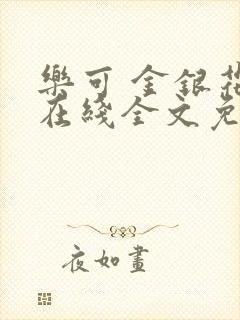 樂可 金銀花
在綫全文免
夜如畫